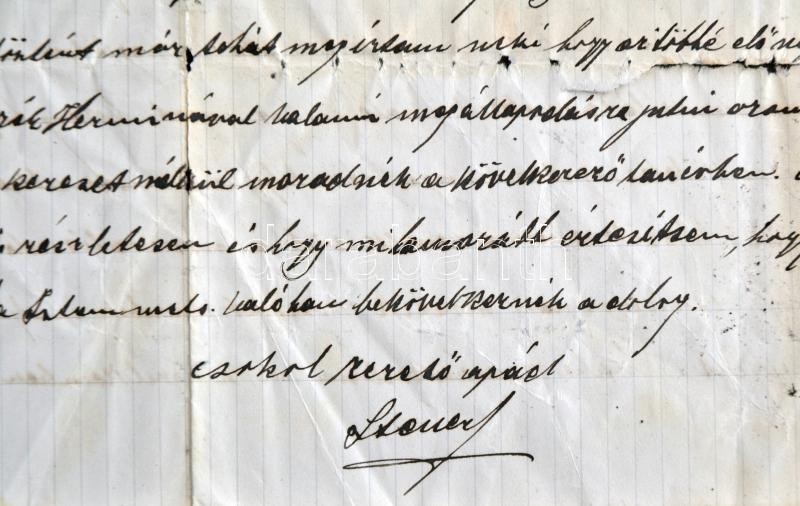 már tehát megírtam neki hogy ez többé elő
Herminával valami megállapodásra jutni
kereset nélkül maradnék a következő tanévben.
részletesen és hogy mihamarább értesítsem, hogy
valóban bekövetkeznék a dolog.
csokol szerető apád